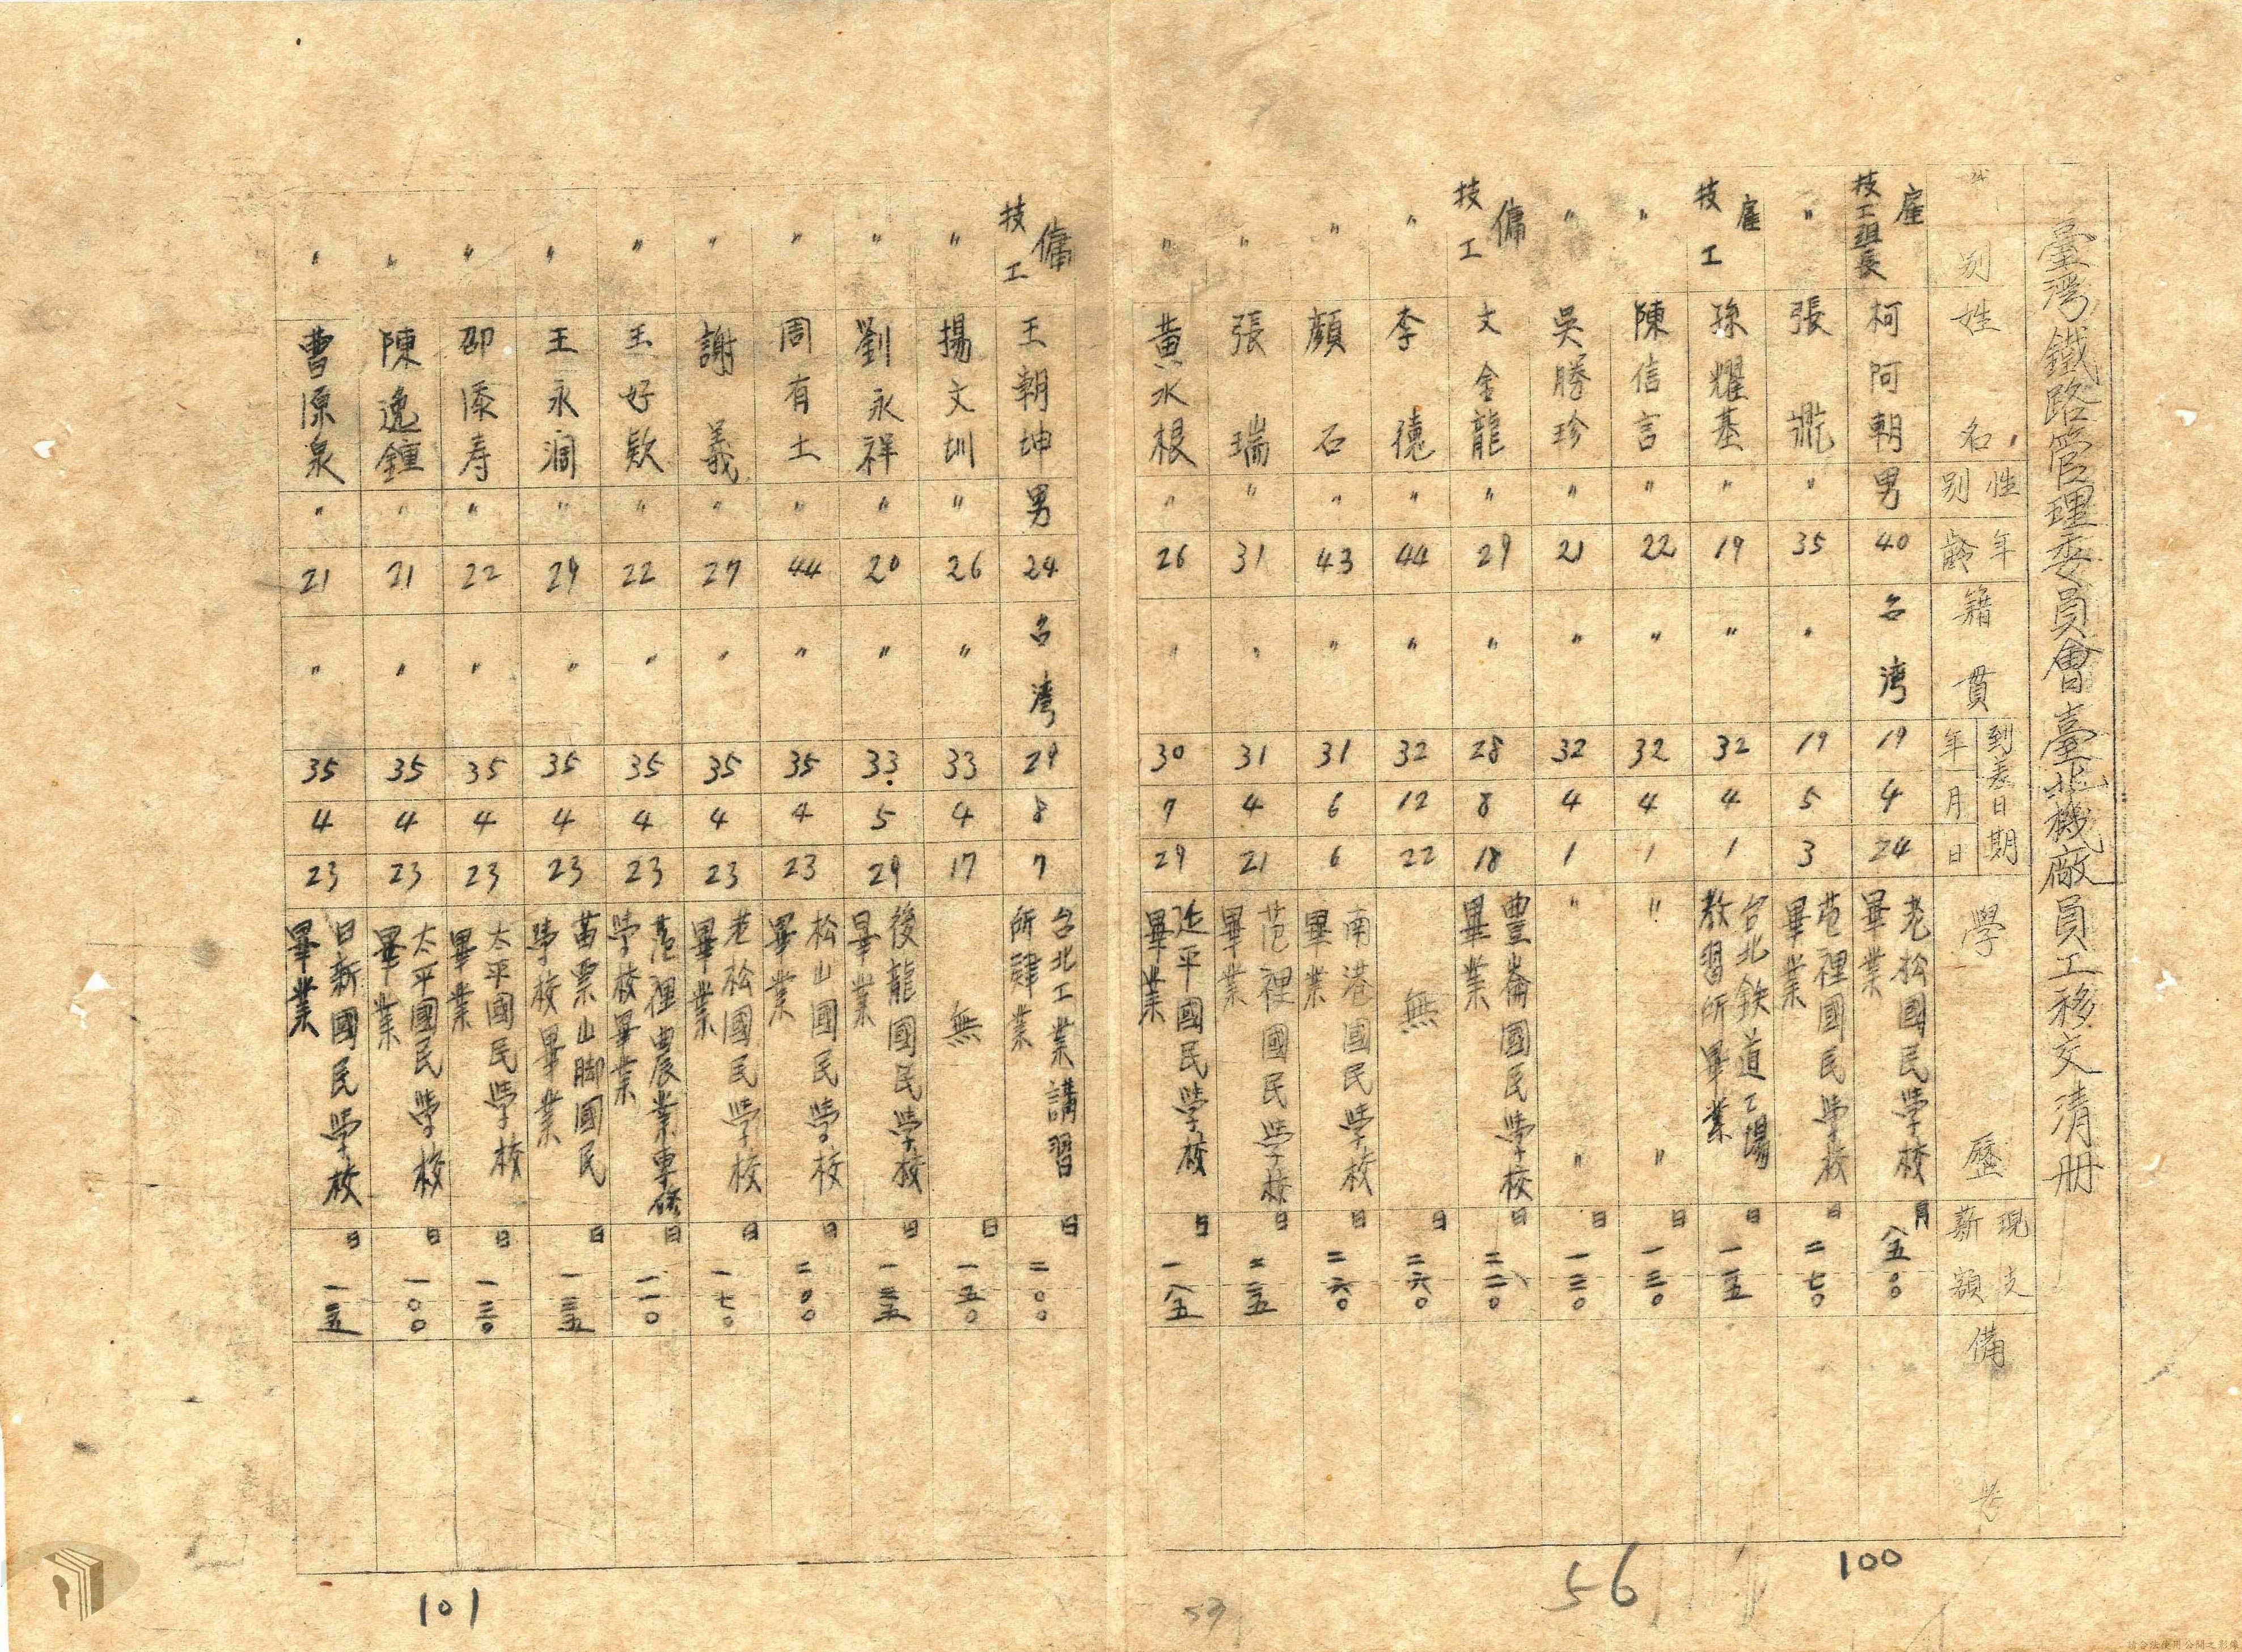 臺灣鐵路管理委員會臺北機廠員工移交清册
別 姓名 性別 年齡 籍貫 到差日期 年月日 學歷 現支薪額 備考
雇 技工組長 柯阿朝 男 40 台灣 19 4 24 老松國民学校畢業 月 八五〇〇
〃 張 〃 35 〃 19 5 3 苑裡國民学校畢業 日 二七〇
雇 技工 孫耀基 〃 19 〃 32 4 1 台北鉄道工場教習所畢業 日 一一五
〃 陳信言 〃 22 〃 32 4 1 〃 〃 日 一三〇
〃 吳勝珍 〃 21 〃 32 4 1 〃 〃 日 一三〇
傭 技工 文金龍 〃 29 〃 28 8 18 豊崙國民学校畢業 日 二二〇
〃 李德 〃 44 〃 32 12 22 無 日 二六〇
〃 顏石 〃 43 〃 31 6 6 南港國民学校畢業 日 二六〇
〃 張瑞 〃 31 〃 31 4 21 苑裡國民学校畢業 日 二三五
〃 黃水根 〃 26 〃 30 7 29 延平國民学校畢業 日 一八五
傭 技工 王朝坤 男 24 台灣 29 8 7 台北工業講習所肄業 日 二〇〇
〃 揚文圳 〃 26 〃 33 4 17 無 日 一五〇
〃 劉永祥 〃 20 〃 33 5 29 後龍國民学校畢業 日 一三五
〃 周有土 〃 44 〃 35 4 23 松山國民学校畢業 日 二〇〇
〃 謝義 〃 27 〃 35 4 23 老松國民学校畢業 日 一七〇
〃 王好欵 〃 22 〃 35 4 23 苑裡農業專修学校畢業 日 一一〇
〃 王永潤 〃 29 〃 35 4 23 苗栗山脚國民学校畢業 日 一三五
〃 邵添寿 〃 22 〃 35 4 23 太平國民学校畢業 日 一三〇
〃 陳逸鐘 〃 21 〃 35 4 23 太平國民学校畢業 日 一〇〇
〃 曹源泉 〃 21 〃 35 4 23 日新國民学校畢業 日 一三五
100
56
59
101